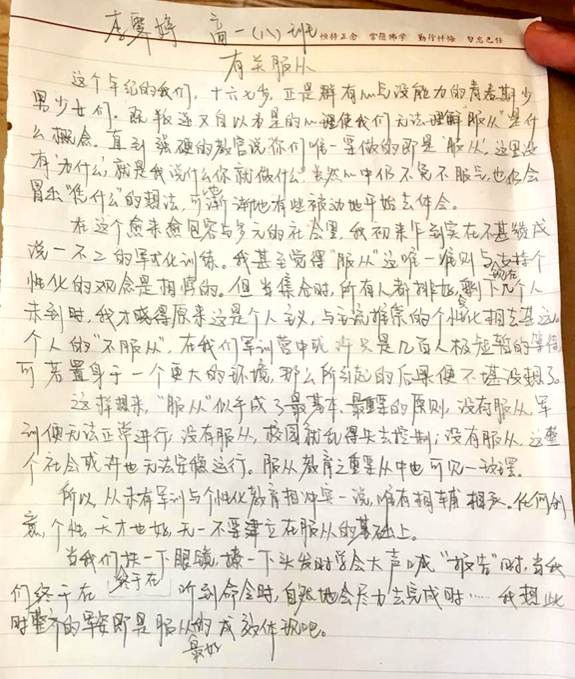 李霁婷 高一(八)班
恒持正念 常随佛学 勤行忏悔
有关服从
这个年纪的我们，十六七岁，正是群有心气没能力的青春期少
男少女们。既叛逆又自以为是的心理使我们无法理解"服从"是什
么概念。直到强硬的教官说你们唯一要做的即是"服从"，这里没
有"为什么"，就是我说什么你就做什么。当然心中仍不免不服气，也会
冒出"凭什么"的想法，可渐渐地有些被动地开始去体会。
在这个愈来愈包容与多元的社会里，我初来乍到实在不甚赞成
说一不二的军式化训练。我甚至觉得"服从"这唯一准则与现在支持个
性化的观念是相悖的。但当集合时，所有人都排好，剩下几个人
未到时，我才晓得原来这是个人主义，与主流推崇的个性化相去甚远。
个人的"不服从"，在我们军训营中或许只是几百人极短暂的等待，
可若置身于一个更大的环境，那么所引起的后果便不堪设想了。
这样想来，"服从"似乎成了最基本、最重要的原则，没有服从，军
训便无法正常进行；没有服从，校园就乱得失去控制；没有服从，这整
个社会或许也无法安稳运行。服从教育之重要从中也可见一斑。
所以，从未有军训与个性化教育相冲突一说，唯有相辅相成。任何创
意，个性，天才也好，无一不要建立在服从的基础上。
当我们扶一下眼镜，撩一下头发时学会大声喊"报告"时，当我
们终于在 终于在 听到命令时，自然地会尽力去完成时……我想此
时整齐的军姿即是服从的最好成效体现吧。